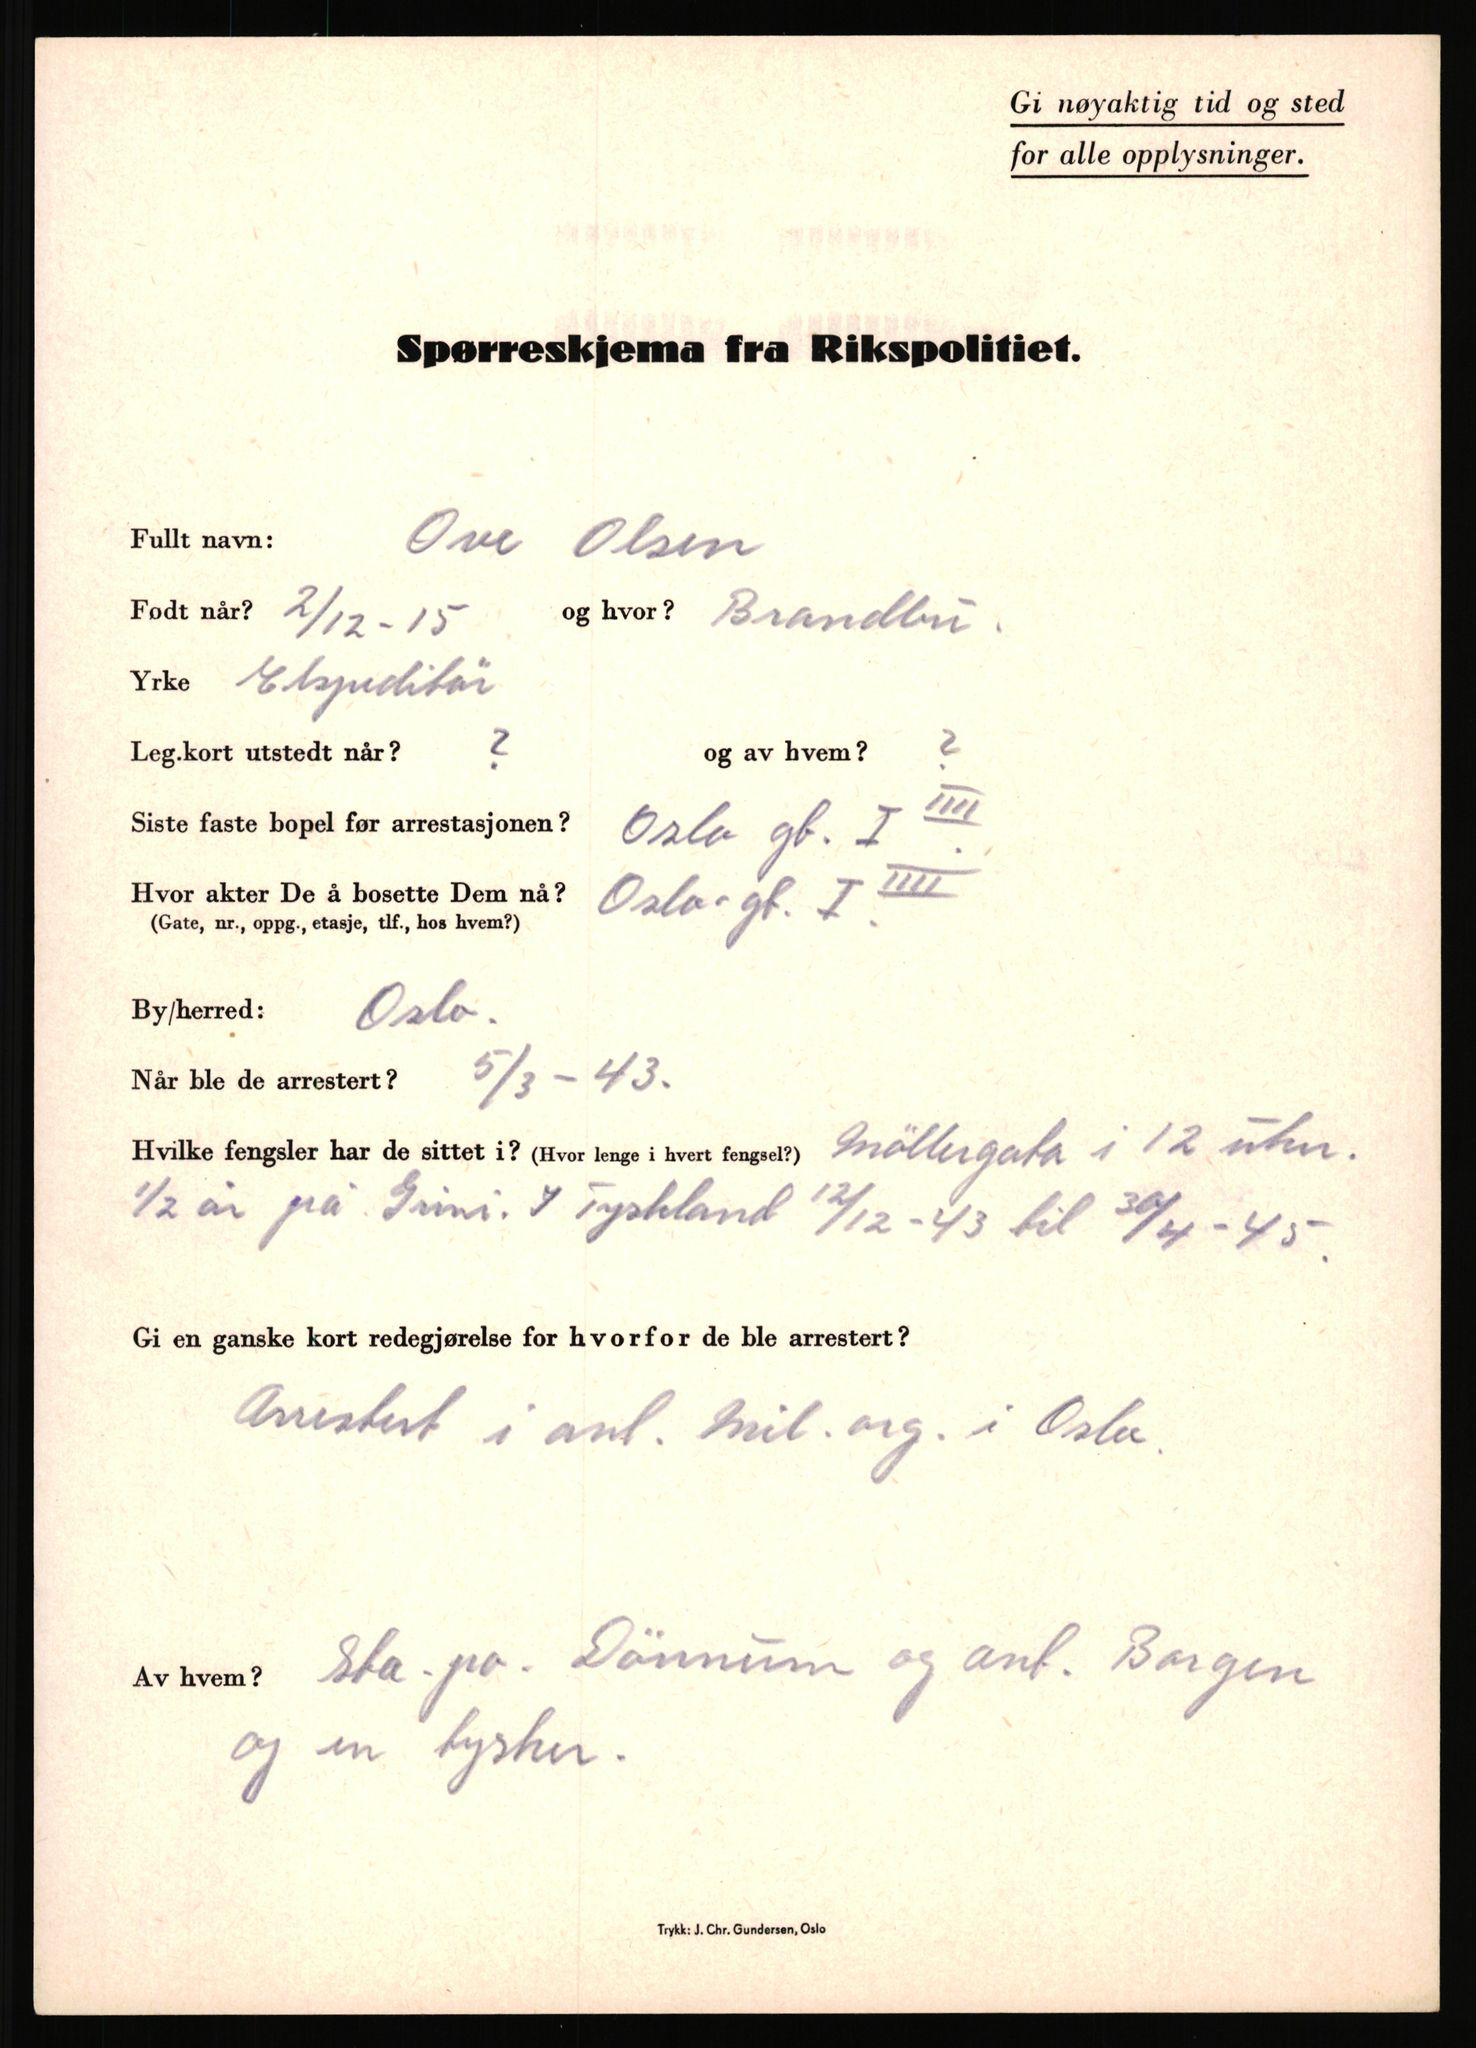 Gi nøyaktig tid og sted
for alle opplysninger.
Spørreskjema fra Rikspolitiet.
Fullt navn: Ove Olsen
Født når? 2/12-15 og hvor? Brandbu.
Yrke Ekspeditör
Leg.kort utstedt når? ? og av hvem? ?
Siste faste bopel før arrestasjonen? Oslo gt. I IIII.
Hvor akter De å bosette Dem nå? Oslo-gt. I IIII.
(Gate, nr., oppg., etasje, tlf., hos hvem?)
By/herred: Oslo.
Når ble de arrestert? 5/3-43.
Hvilke fengsler har de sittet i? (Hvor lenge i hvert fengsel?) Möllergata i 12 uker.
1/2 år på Grini. I Tyskland 12/12-43 til 30/4-45.
Gi en ganske kort redegjørelse for hvorfor de ble arrestert?
Arrestert i ant. Mil. org. i Oslo.
Av hvem? Sta.po. Dönnum og ant. Borgen
og en tysker.
Trykk: J. Chr. Gundersen, Oslo